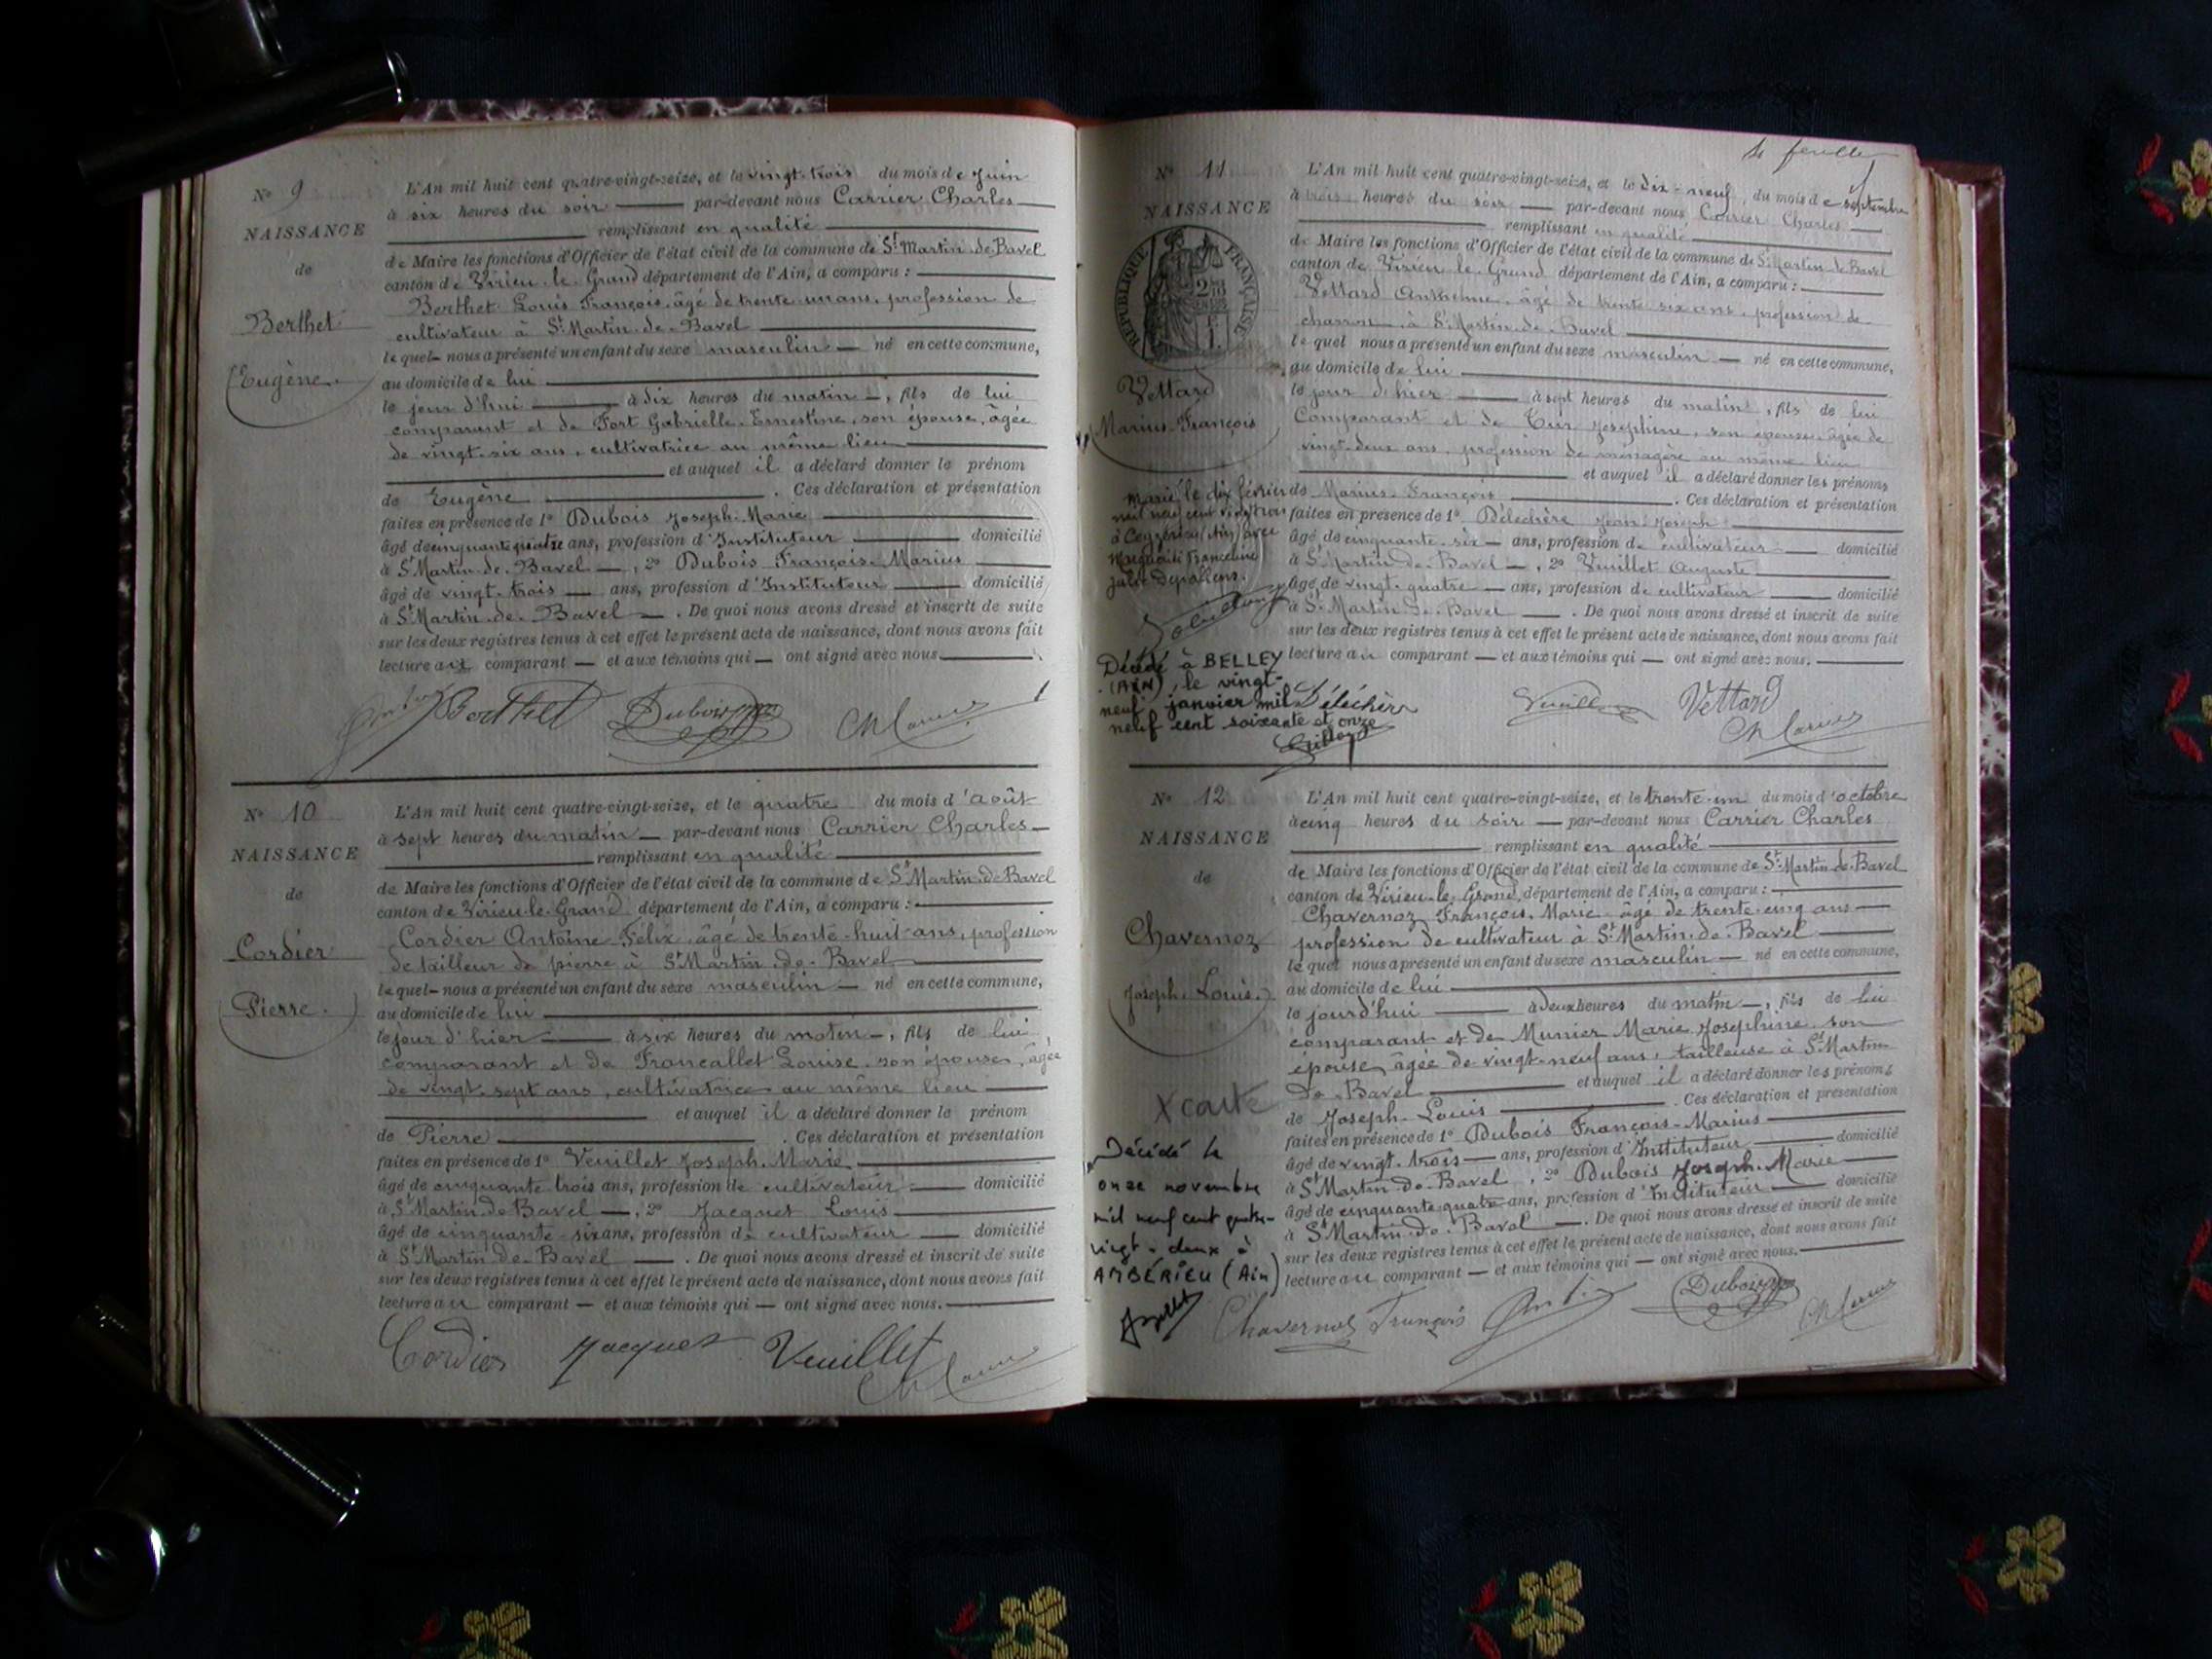 N° 9
NAISSANCE
de
Berthet
Eugène.
L'An mil huit cent quatre-vingt-seize, et le vingt-trois du mois de Juin
à six heures du soir par-devant nous Carrier Charles
remplissant en qualité
de Maire les fonctions d'Officier de l'état civil de la commune de St Martin-de-Bavel
canton de Virieu-le-Grand département de l'Ain, a comparu :
Berthet Louis François, âgé de trente-un ans, profession de
cultivateur à St Martin-de-Bavel
lequel nous a présenté un enfant du sexe masculin né en cette commune,
au domicile de lui
le jour d'hui à dix heures du matin, fils de lui
comparant et de Fort Gabrielle-Ernestine, son épouse, âgée
de vingt-six ans, cultivatrice au même lieu
et auquel il a déclaré donner le prénom
de Eugène. Ces déclaration et présentation
faites en présence de 1° Dubois Joseph-Marie
âgé de cinquante quatre ans, profession d'Instituteur domicilié
à St Martin-de-Bavel, 2° Dubois François-Marius
âgé de vingt-trois ans, profession d'Instituteur domicilié
à St Martin-de-Bavel. De quoi nous avons dressé et inscrit de suite
sur les deux registres tenus à cet effet le présent acte de naissance, dont nous avons fait
lecture au comparant et aux témoins qui ont signé avec nous.
Berthet Dubois
N° 10
NAISSANCE
de
Cordier
Pierre.
L'An mil huit cent quatre-vingt-seize, et le quatre du mois d'août
à sept heures du matin par-devant nous Carrier Charles
remplissant en qualité
de Maire les fonctions d'Officier de l'état civil de la commune de St Martin-de-Bavel
canton de Virieu-le-Grand département de l'Ain, a comparu :
Cordier Antoine Félix, âgé de trente-huit ans, profession
de tailleur de pierre à St Martin-de-Bavel
lequel nous a présenté un enfant du sexe masculin né en cette commune,
au domicile de lui
le jour d'hier à six heures du matin, fils de lui
comparant et de Francallet Louise, son épouse, âgée
de vingt-sept ans, cultivatrice au même lieu
et auquel il a déclaré donner le prénom
de Pierre. Ces déclaration et présentation
faites en présence de 1° Veuillet Joseph-Marie
âgé de cinquante trois ans, profession de cultivateur domicilié
à St Martin-de-Bavel, 2° Jacquet Louis
âgé de cinquante-six ans, profession de cultivateur domicilié
à St Martin-de-Bavel. De quoi nous avons dressé et inscrit de suite
sur les deux registres tenus à cet effet le présent acte de naissance, dont nous avons fait
lecture au comparant et aux témoins qui ont signé avec nous.
Cordier Jacquet Veuillet
4 feuille
N° 11
NAISSANCE
RÉPUBLIQUE FRANÇAISE
Vettard
Marius-François
marié le dix février
Décédé à BELLEY
(AIN), le vingt-
neuf janvier mil
neuf cent soixante et onze
L'An mil huit cent quatre-vingt-seize, et le dix-neuf du mois de septembre
à trois heures du soir par-devant nous Carrier Charles
remplissant en qualité
de Maire les fonctions d'Officier de l'état civil de la commune de St Martin-de-Bavel
canton de Virieu-le-Grand département de l'Ain, a comparu :
Vettard Anthelme, âgé de trente six ans, profession de
charron, à St Martin-de-Bavel
lequel nous a présenté un enfant du sexe masculin né en cette commune,
au domicile de lui
le jour d'hier à sept heures du matin, fils de lui
comparant et de Joséphine, son épouse, âgée de
vingt-deux ans, profession de ménagère au même lieu
et auquel il a déclaré donner les prénoms
de Marius-François. Ces déclaration et présentation
faites en présence de 1° Délechère Jean-Joseph
âgé de cinquante-six ans, profession de cultivateur domicilié
à St Martin-de-Bavel, 2° Veuillet Auguste
âgé de vingt-quatre ans, profession de cultivateur domicilié
à St Martin-de-Bavel. De quoi nous avons dressé et inscrit de suite
sur les deux registres tenus à cet effet le présent acte de naissance, dont nous avons fait
lecture au comparant et aux témoins qui ont signé avec nous.
Veuillet Vettard
N° 12
NAISSANCE
de
Chavernoz
Joseph-Louis.
X carte
Décédé le
onze novembre
mil neuf cent quatre-
vingt-deux à
AMBÉRIEU (Ain)
L'An mil huit cent quatre-vingt-seize, et le trente-un du mois d'octobre
à cinq heures du soir par-devant nous Carrier Charles
remplissant en qualité
de Maire les fonctions d'Officier de l'état civil de la commune de St Martin-de-Bavel
canton de Virieu-le-Grand, département de l'Ain, a comparu :
Chavernoz François-Marie âgé de trente-cinq ans
profession de cultivateur à St Martin-de-Bavel
lequel nous a présenté un enfant du sexe masculin né en cette commune,
au domicile de lui
le jourd'hui à deux heures du matin, fils de lui
comparant et de Munier Marie-Joséphine son
épouse, âgée de vingt-neuf ans, tailleuse à St Martin
de-Bavel et auquel il a déclaré donner les prénoms
de Joseph-Louis. Ces déclaration et présentation
faites en présence de 1° Dubois François-Marius
âgé de vingt-trois ans, profession d'Instituteur domicilié
à St Martin-de-Bavel, 2° Dubois Joseph-Marie
âgé de cinquante quatre ans, profession d'Instituteur domicilié
à St Martin-de-Bavel. De quoi nous avons dressé et inscrit de suite
sur les deux registres tenus à cet effet le présent acte de naissance, dont nous avons fait
lecture au comparant et aux témoins qui ont signé avec nous.
Chavernoz François Dubois